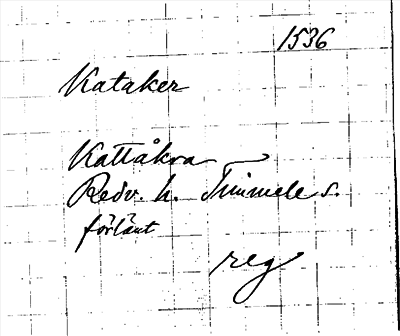 1536
Kataker
Kattåkra
Redv. h. Timmele s.
förlänt
reg